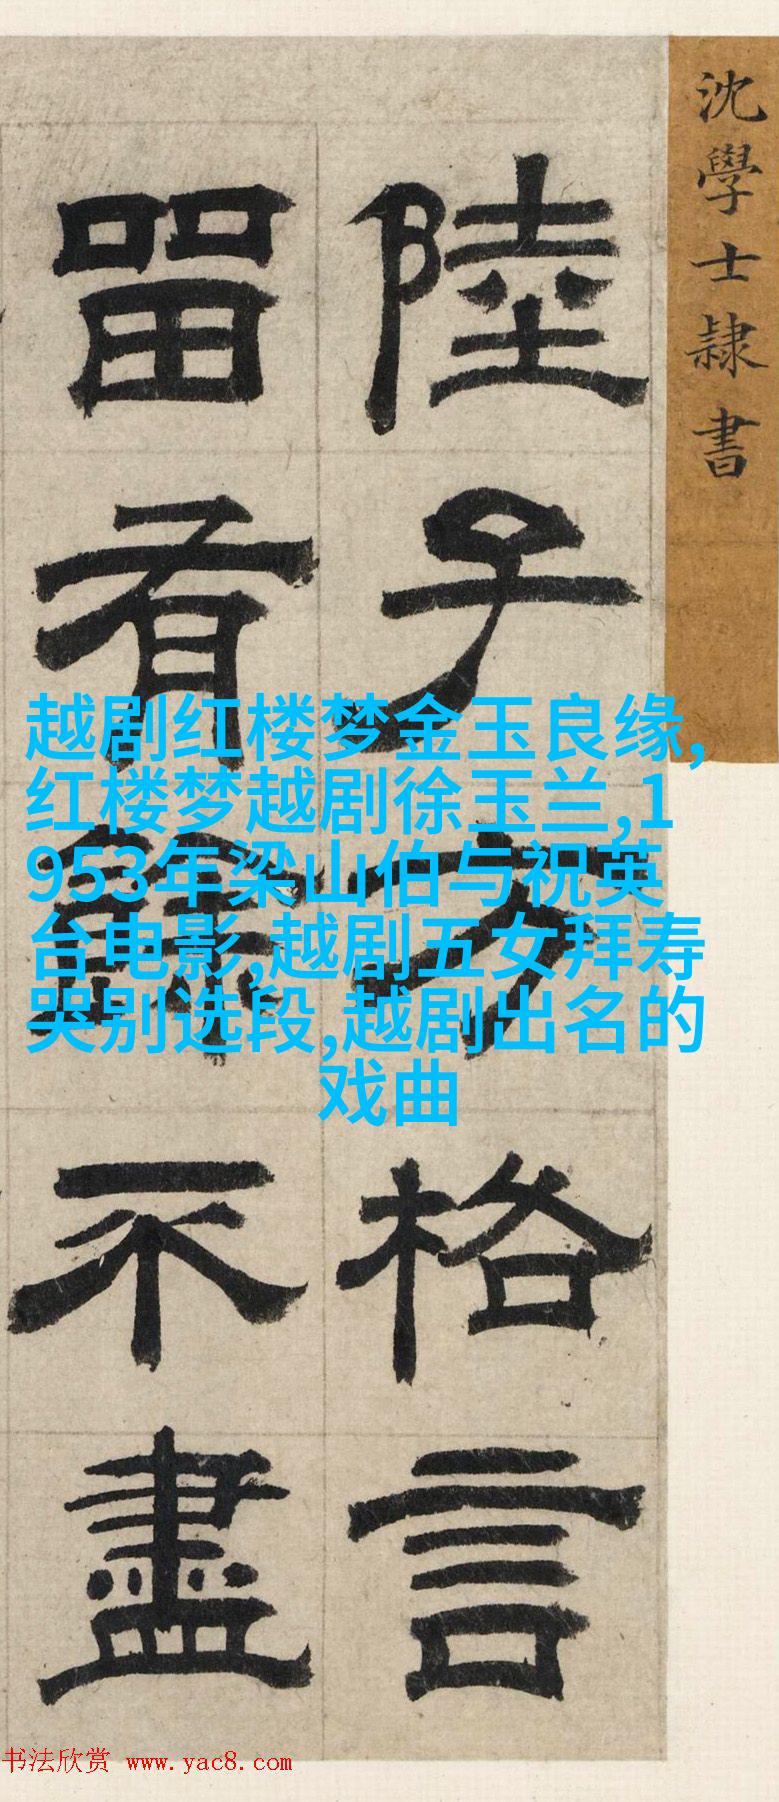 沈學士隸書
陸子方格言
畱有餘不盡
越剧红楼梦金玉良缘,
红楼梦越剧徐玉兰,1
953年梁山伯与祝英
台电影,越剧五女拜寿
哭别选段,越剧出名的
戏曲
书法欣赏 www.yac8.com